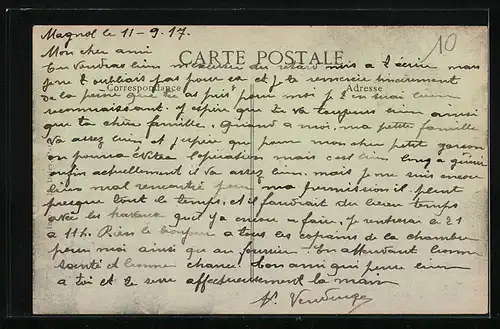 Magnol le 11-9.17.
10
Mon cher ami
CARTE POSTALE
Tu voudras bien m'excuser du retard mis à t'écrire mais
je ne t'oubliais pas pour ça et je te remercie sincèrement
Correspondance
Adresse
de la peine que tu as pris pour moi je t'en suis bien
reconnaissant. j'espère que tu va toujours bien ainsi
que ta chère famille. Quand a moi, ma petite famille
va assez bien et j'espère que pour mon cher petit garçon
on pourra éviter l'opération mais c'est bien long a guérir
enfin actuellement il va assez bien. mais je suis encore
bien mal rencontré pour ma permission il pleut
presque tout le temps, et il faudrait du beau temps
avec les travaux qu'il y a encore a faire, je rentrerai le 21
a 11h. Rien le bonjour a tous les copains de la chambre
pour moi ainsi que au fourrier. En attendant bonne
santé et bonne chance! Ton ami qui pense bien
a toi et te serre affectueusement la main